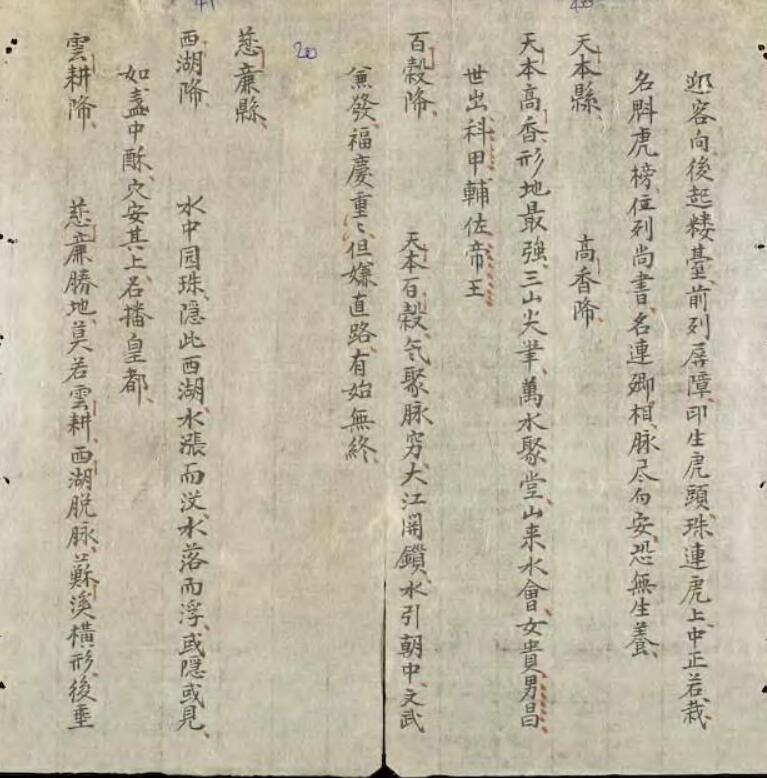 迎客向後起楼臺前列屏障印生虎頭珠連虎上中正若栽
名魁虎榜位列尚書名連卿相脉尽向安恐無生養
天本縣 高香㡳
天本高香形地最強三山尖筆萬水聚堂山来水會女貴男昌
世出科甲輔佐帝王
百穀㡳 天本百穀気聚脉穷大江開鎖水引朝中文武
兼發福慶重〻但嫌直路有始無終
20
慈廉縣
西湖㡳 水中园珠隱此西湖水漲而没水落而浮或隱或見
如盞中酥穴安其上名播皇都
雲耕㡳 慈廉勝地莫若雲耕西湖脱脉蘇溪橫形後垂